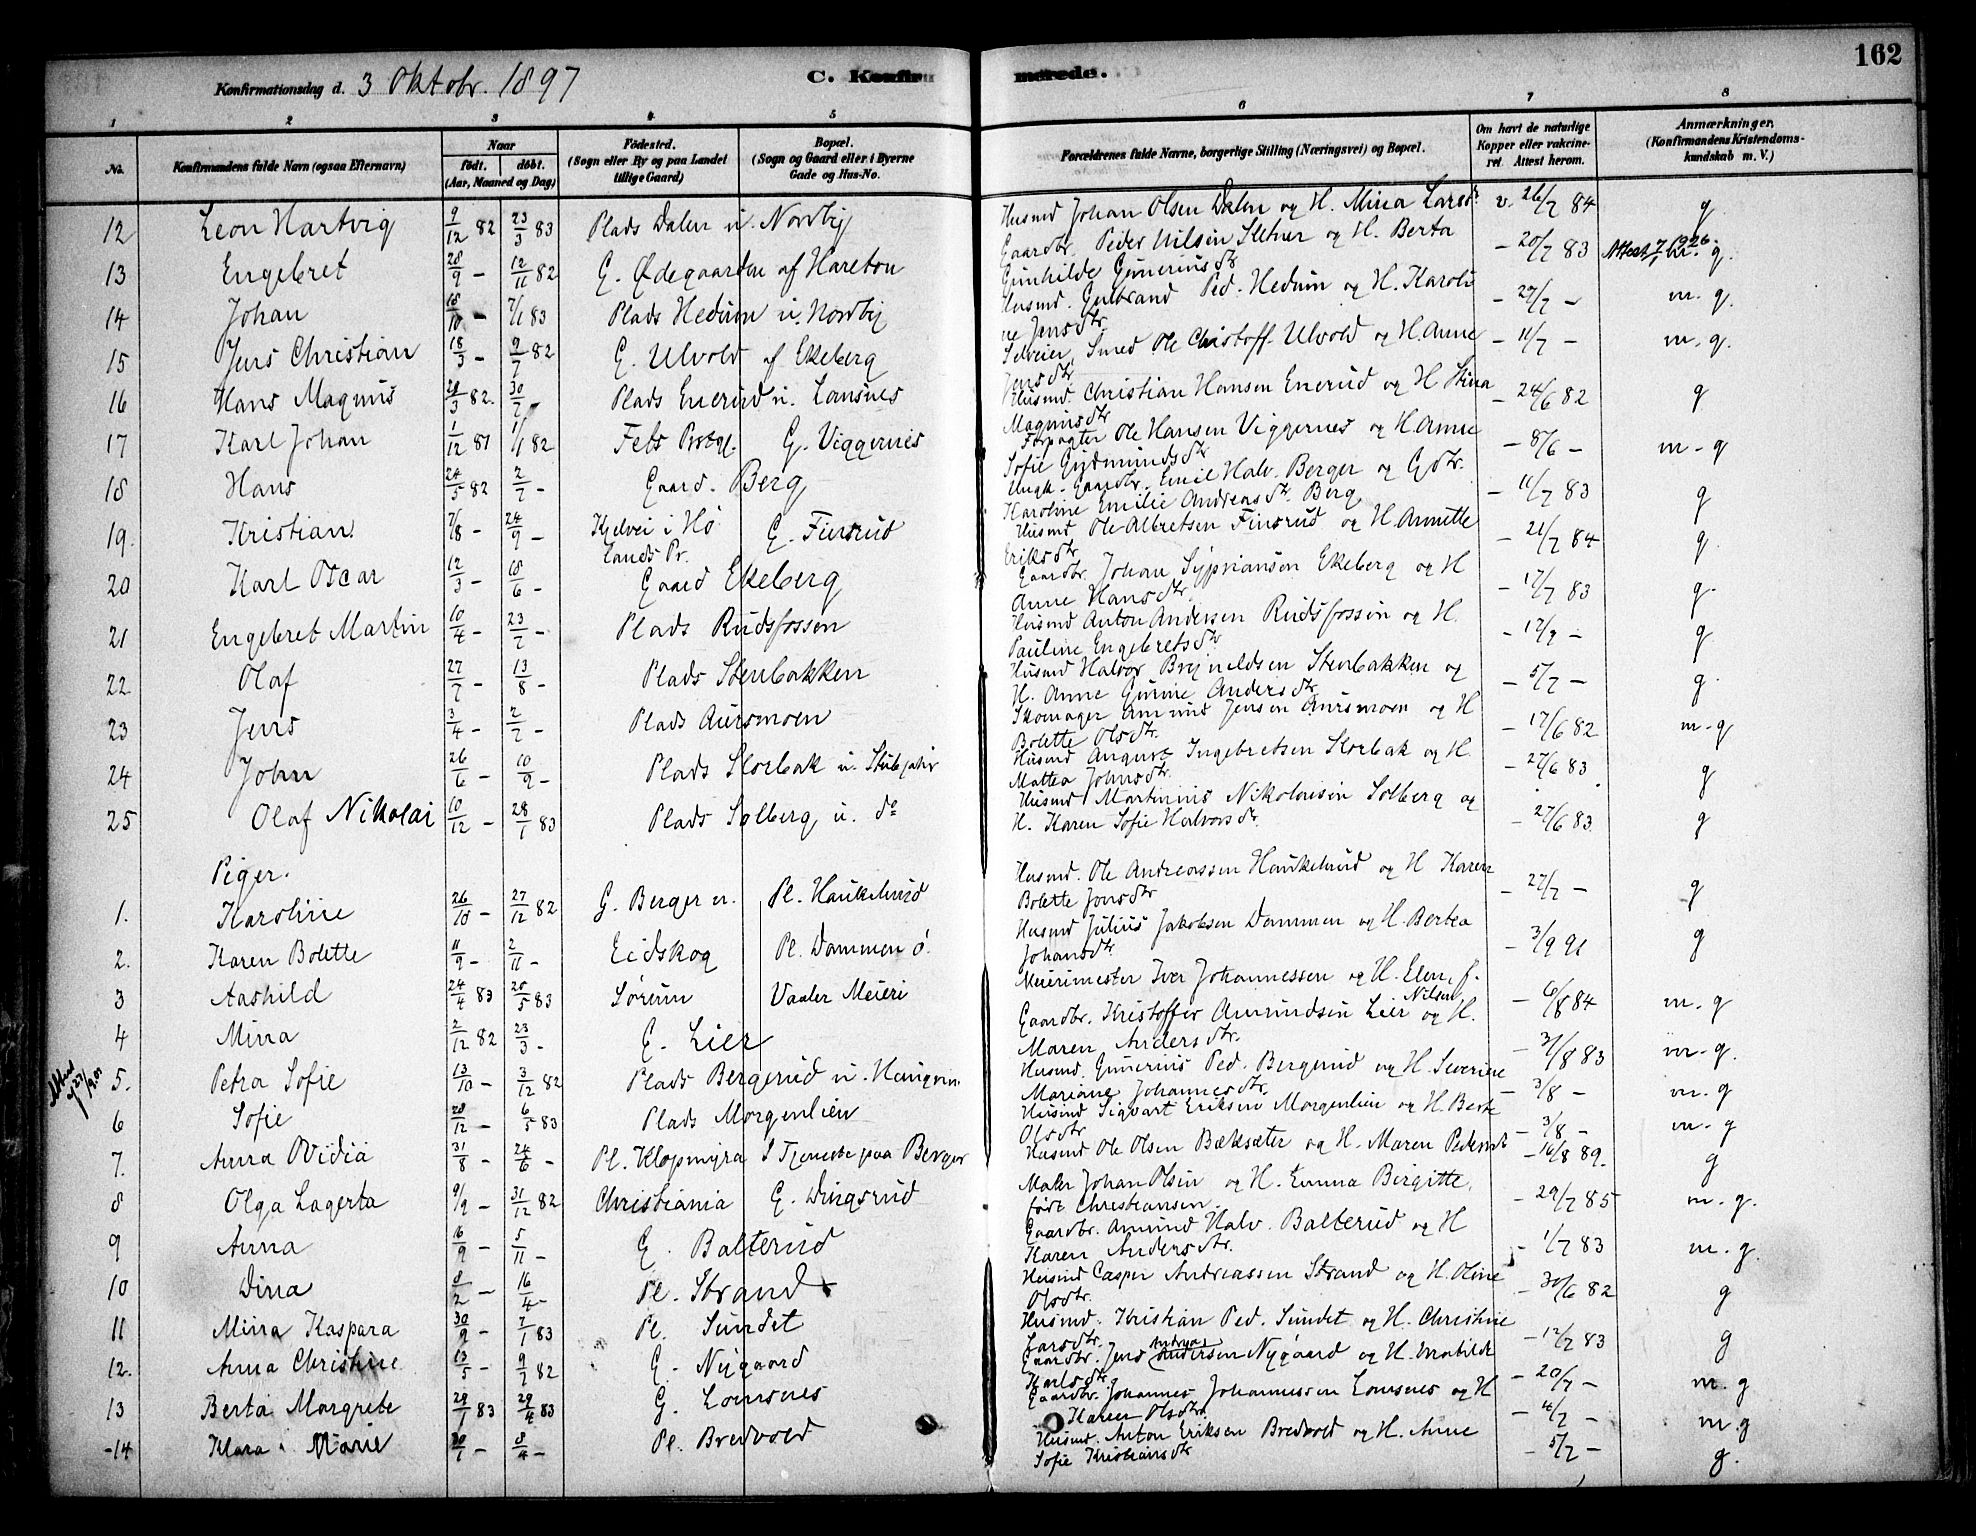 162
Konfirmationsdag d. 3 Oktobr. 1897 C. Konfirmerede.
1 2 3 4 5 6 7 8
No. Konfirmandens fulde Navn (ogsaa Efternavn) Naar født. døbt. (Aar, Maaned og Dag) Fødested. (Sogn eller By og paa Landet tillige Gaard) Bopæl. (Sogn og Gaard eller i Byerne Gade og Hus-No. Forældrenes fulde Navne, borgerlige Stilling (Næringsvei) og Bopæl. Om havt de naturlige Kopper eller vakcineret. Attest herom. Anmærkninger. (Konfirmandens Kristendomskundskab m. V.)
12 Leon Hartvig 9/12 82 23/3 83 Plads Dalen u. Nordby Husmd Johan Olsen Dalen og H. Mina Larsdr v. 26/7 84 g
13 Engebret 28/9 - 12/11 82 G. Ødegaarden af Hareton Gaardbr. Peder Nilsen Sletner og H. Berta Gunhilde Guneriusdtr - 20/7 83 Attest g.
14 Johan 18/10 - 7/1 83 Plads Hedum u. Nordby Husmd. Gulbrand Ped. Hedum og H. Karoline Jensdtr - 27/7 - m. g.
15 Jens Christian 18/3 - 9/7 82 G. Ulvold af Ekeberg Selveier, Smed Ole Christoff. Ulvold og H Anne Jensdtr. - 11/7 - m. g.
16 Hans Magnus 28/3 82. 30/7 - Plads Enerud u. Lomsnes Husmd. Christian Hansen Enerud og H Stina Magnusdtr - 24/6 82 g
17 Karl Johan 1/12 81 1/1 82 Fets Prstgj. G. Viggernes Forpagter Ole Hansen Viggernes og H Anne Sofie Gudmundsdtr - 8/6 - m - g
18 Hans 24/5 82 2/7 - Gaard. Berg Ungk. Gaardbr. Emil Halv. Berger og Gdtr. Karoline Emilie Andreasdtr. Berg - 11/7 83 g
19. Kristian 7/8 - 24/9 - Kjelvei i Hølands Pr. G. Finsrud Husmd Ole Albretsen Finsrud og H. Annette Eriksdtr - 21/7 84 g.
20 Karl Oscar 12/3 - 18/6 - Gaard Ekeberg Gaardbr. Johan Sypriansen Ekeberg og H Anne Hansdtr. - 17/7 83 g.
21 Engebret Martin 10/4 - 23/7 - Plads Rudsfossen Husmd Anton Andersen Rudsfossen og H. Pauline Engebretsdtr - 17/7 - g
22 Olaf 27/7 - 13/8 - Plads Stenbakken Husmd Halvor Brynildsen Stenbakken og H. Anne Gurine Andersdtr - 5/7 - g.
23 Jens 3/4 - 2/7 - Plads Aursmoen Skomager Amund Jensen Aursmoen og H Bolette Olsdtr. - 17/6 82 m - g
24 John 26/6 - 10/9 - Plads Storbak u. Husmd August Ingebretsen Storbak og H. Mattea Johnsdtr. - 27/6 83 g
25 Olaf Nikolai 10/12 - 28/1 83 Plads Solberg u. do Husmd Martinius Nikolaisen Solberg og H. Karen Sofie Halvorsdtr. - 27/6 83 g
Piger.
1. Karoline 26/10 - 27/12 82 G. Berger u. Pl. Haukelurud Husmd. Ole Andreassen Haukelurud og H Karen Bolette Jonsdtr - 27/7 - g
2. Karen Bolette 11/9 - 2/11 - Eidskog Pl. Dammen ø. Husmd Julius Jakobsen Dammen og H. Bertea Johansdtr - 3/9 91 g
3 Aashild 24/4 83 20/5 83 Sørum Vaaler Meieri Meierimester Iver Johannessen og H. Elen, f. Nilsen - 6/8 84 m - g
4 Mina 2/12 82 23/3 - G. Lier Gaardbr. Kristoffer Amundsen Lier og H. Maren Andersdtr. - 31/8 83 m - g.
5. Petra Sofie 13/10 - 3/12 82 Plads Bergerud u. Husmd. Gunerius Ped. Bergerud og H. Severine Mariane Johannesdtr. - 3/8 - m. g
6 Sofie 28/12 - 6/5 83 Plads Morgenlien Husmd Sigvart Eriksen Morgenlien og H. Berte Olsdtr - 3/8 - m - g
7. Anna Ovidia 31/8 - 24/6 - Pl. Klopmyra I Tjeneste paa Berger Husmd Ole Olsen Bæksæter og H. Maren Pedersdt - 16/8 89. g
8 Olga Lagerta 9/9 - 31/12 82 Christiania G. Dingsrud Maler Johan Olsen og H. Emma Birgitte, født Christiansen. - 29/7 85 m. g.
9 Anna 16/9 - 5/11 - G. Balterud Gaardbr. Amund Halv. Balterud og H Karen Andersdtr. - 1/7 83 m. g.
10 Dina 8/2 - 16/4 - Pl. Strand Husmd Casper Andreassen Strand og H. Oline Olsdtr. - 30/6 82 g
11 Mina Kaspara 30/9 - 7/1 83 Pl. Sundet Husmd. Kristian Ped. Sundet og H. Christine Larsdtr. - 12/7 83 g
12. Anna Christine 13/5 - 9/7 82 G. Nygaard Gaardbr. Jens Andersen Nygaard og H. Matilde Karlsdtr. - 20/7 - m. g
13 Berta Margrete 28/1 83 29/4 83 G. Lomsnes Gaardbr. Johannes Johannessen Lomsnes og H Karen Olsdtr. - 4/7 - m. g
-14 Klara Marie 20/1 - 8/4 - Pl. Bredvold Husmd. Anton Eriksen Bredvold og H. Anne Sofie Kristiansdtr - 5/7 - g.